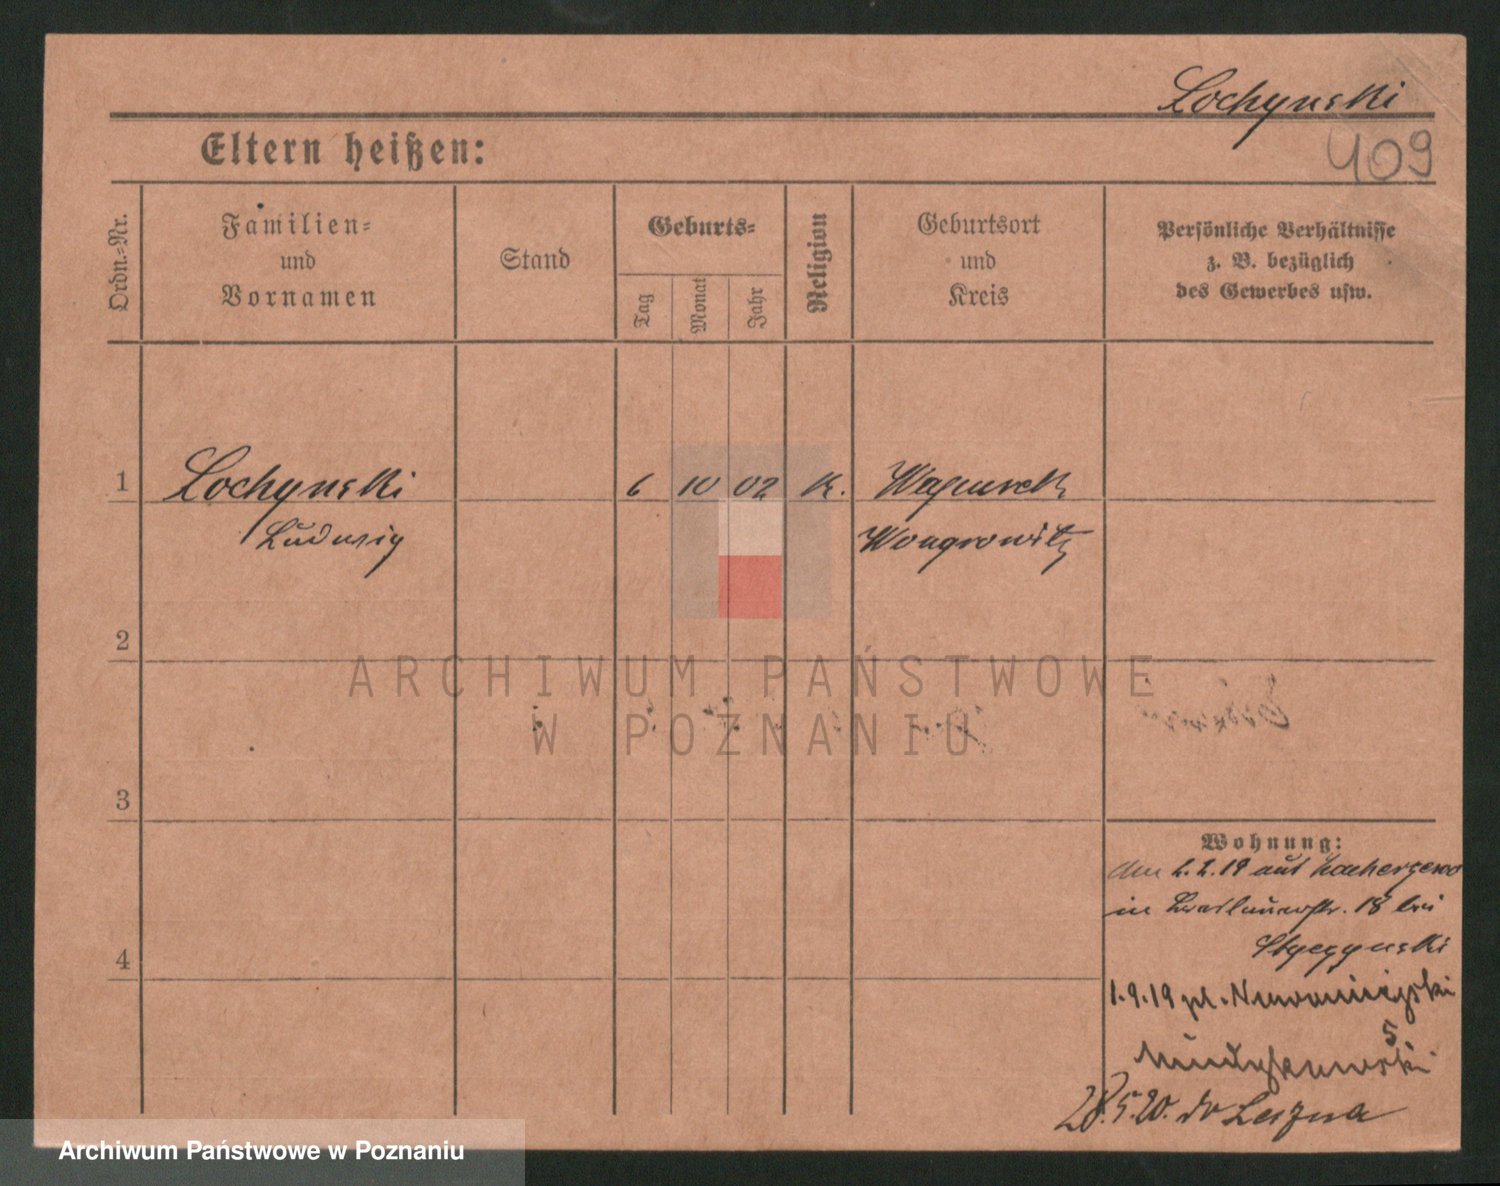 Lochynski
409
Eltern heißen:
Ordn.-Nr.
Familien-
und
Vornamen
Stand
Geburts-
Tag
Monat
Jahr
Religion
Geburtsort
und
Kreis
Persönliche Verhältnisse
z. B. bezüglich
des Gewerbes usw.
1
Lochynski
6 10 02 K.
Ludwig
Wongrowitz
2
ARCHIWUM PAŃSTWOWE
W POZNANIU
3
Wohnung:
2.2.19 aus
in 18 bei
4
1.9.19 pl. Nowomiejski
5
28.5.20. do Leszna
Archiwum Państwowe w Poznaniu